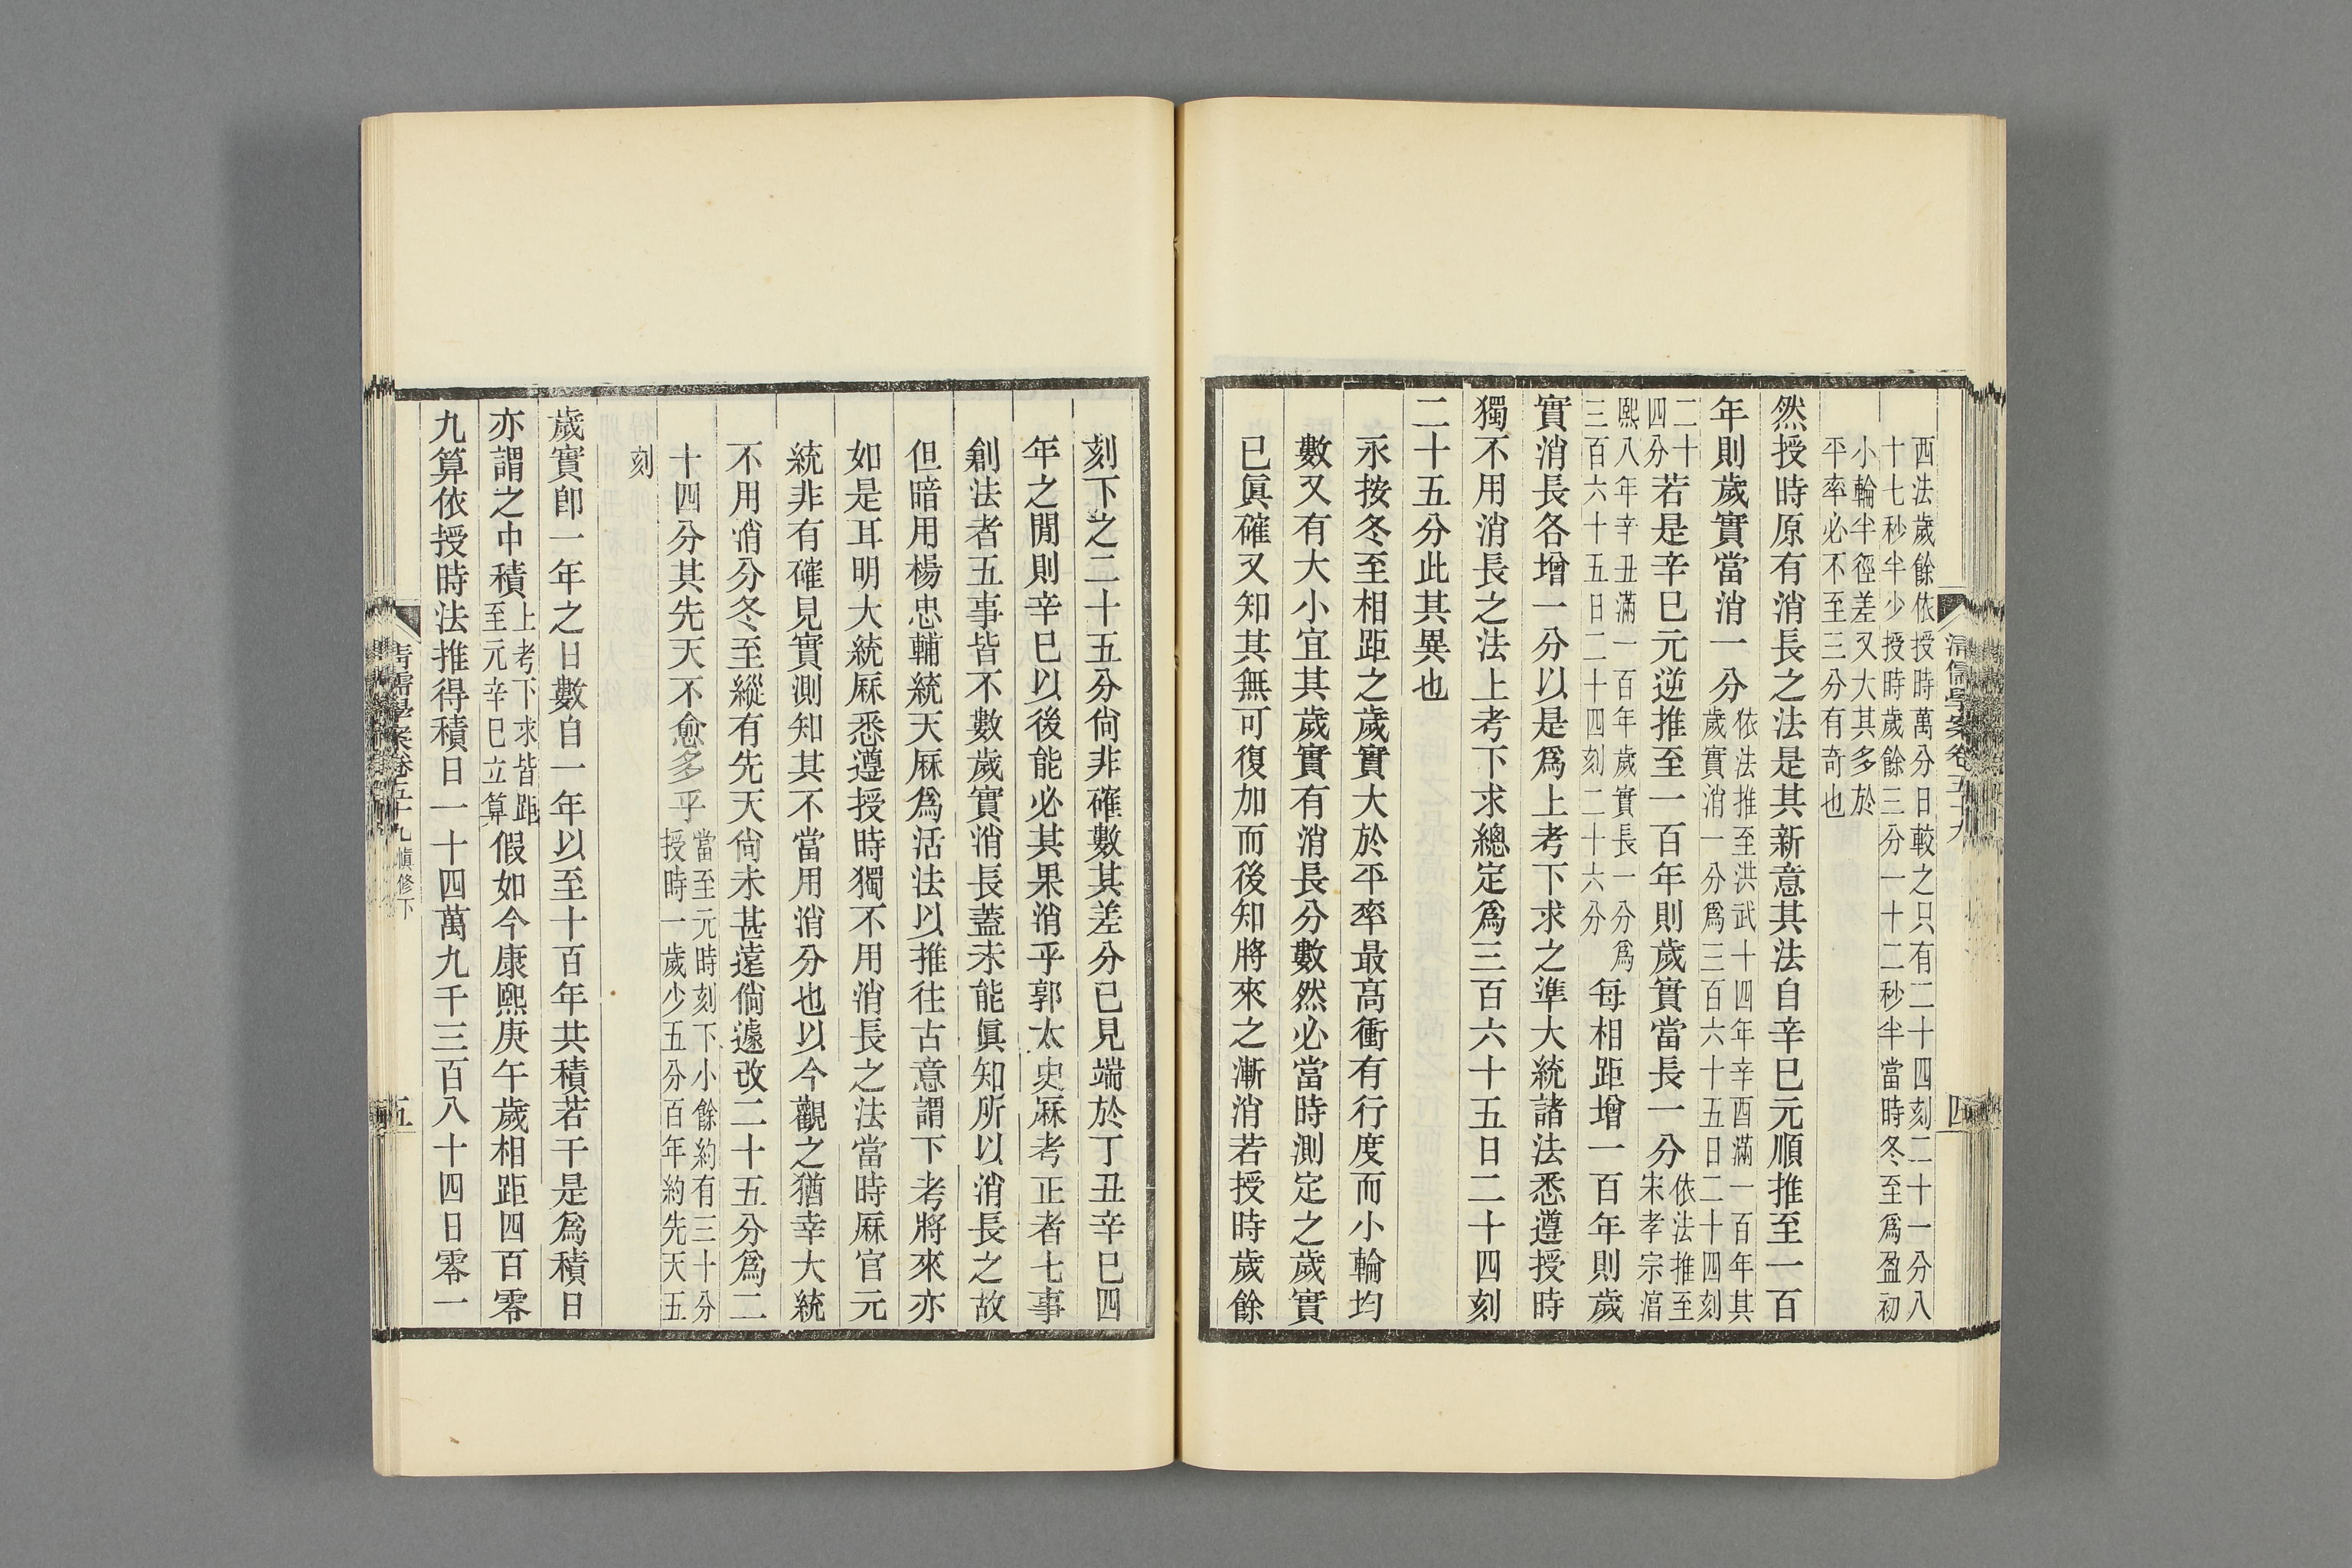 西法歲餘依授時萬分日較之只有二十四刻二十一分八
十七秒半少授時歲餘三分一十二秒半當時冬至爲盈初
小輪半徑差又大其多於
平率必不至三分有奇也
然授時原有消長之法是其新意其法自辛巳元順推至一百
年則歲實當消一分依法推至洪武十四年辛酉滿一百年其歲實消一分爲三百六十五日二十四刻
二十四分若是辛巳元逆推至一百年則歲實當長一分依法推至宋孝宗淳
熙八年辛丑滿一百年歲實長一分爲三百六十五日二十四刻二十六分每相距增一百年則歲
實消長各增一分以是爲上考下求之準大統諸法悉遵授時
獨不用消長之法上考下求總定爲三百六十五日二十四刻
二十五分此其異也
永按冬至相距之歲實大於平率最高衝有行度而小輪均
數又有大小宜其歲實有消長分數然必當時測定之歲實
已眞確又知其無可復加而後知將來之漸消若授時歲餘
清儒學案卷五十九
四
刻下之二十五分尙非確數其差分已見端於丁丑辛巳四
年之閒則辛巳以後能必其果消乎郭太史厤考正者七事
創法者五事皆不數歲實消長蓋未能眞知所以消長之故
但暗用楊忠輔統天厤爲活法以推往古意謂下考將來亦
如是耳明大統厤悉遵授時獨不用消長之法當時厤官元
統非有確見實測知其不當用消分也以今觀之猶幸大統
不用消分冬至縱有先天尙未甚遠倘遽改二十五分爲二
十四分其先天不愈多乎當至元時刻下小餘約有三十分授時一歲少五分百年約先天五
刻
歲實卽一年之日數自一年以至十百年共積若干是爲積日
亦謂之中積上考下求皆距至元辛巳立算假如今康熙庚午歲相距四百零
九算依授時法推得積日一十四萬九千三百八十四日零一
清儒學案卷五十九 愼修下
五